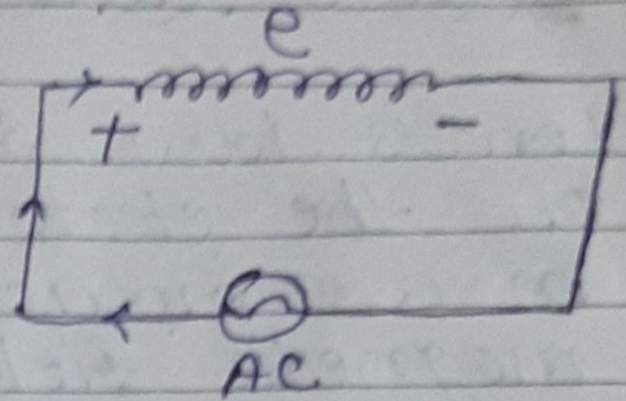 e
+ -
AC